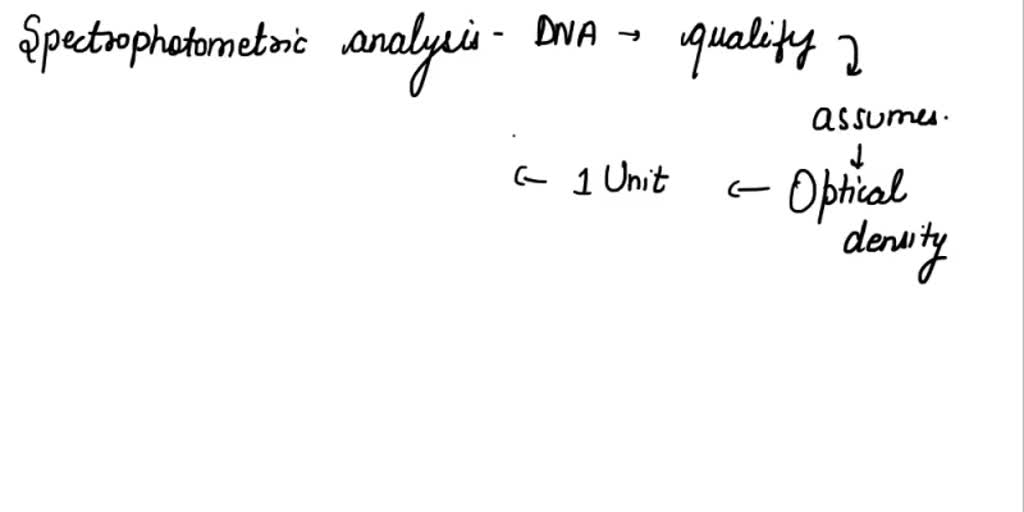 Spectrophotometric analysis - DNA → qualify
assumes.
← 1 Unit ← Optical
density